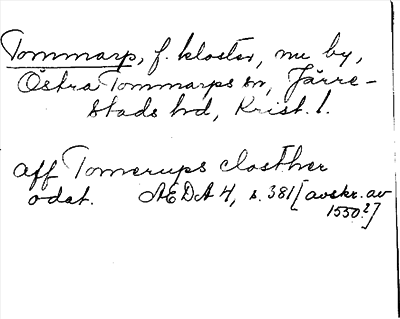 Tommarp, f. kloster, nu by,
Östra Tommarps sn, Järre-
stads hd, Krist. l.
aff Tomerups closther
odat. AEDA 4, s. 381 [avskr. av
1550?]